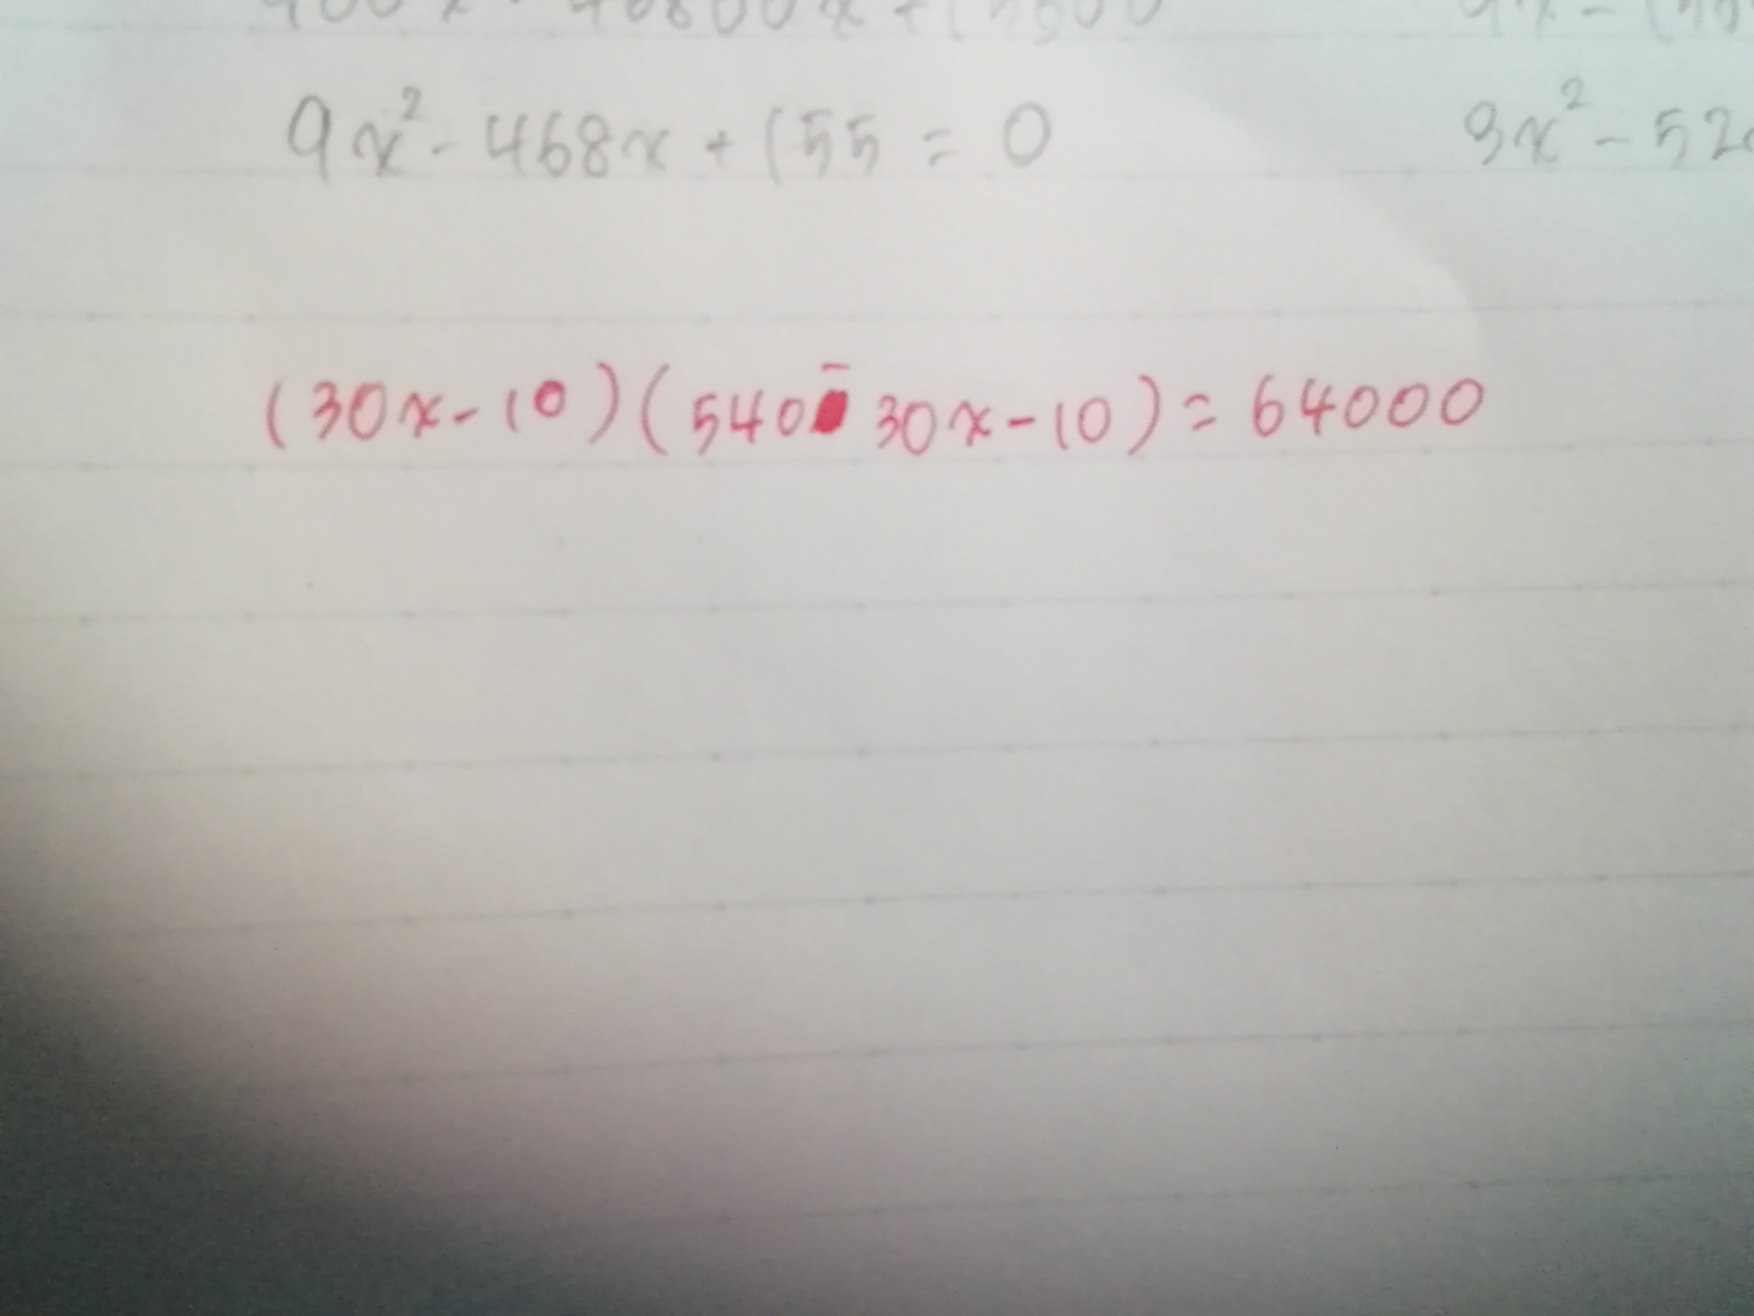 9x² - 468x + 155 = 0
9x² - 52
(30x-10)(540 - 30x-10) = 64000